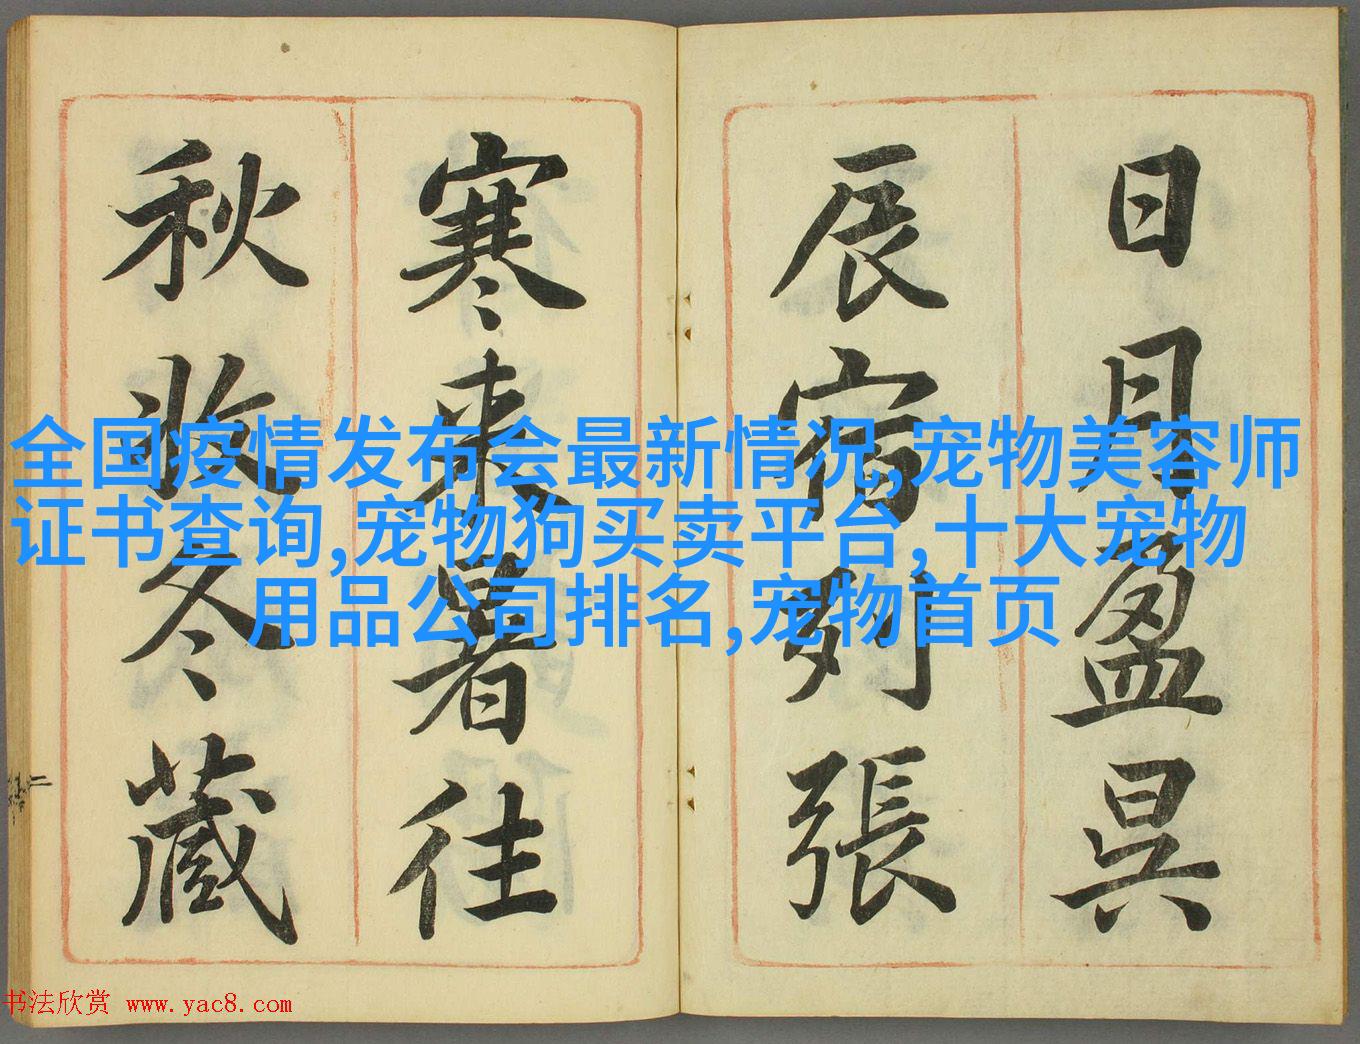 日月盈昃
辰宿列張
寒来暑往
秋收冬藏
全国疫情发布会最新情况,宠物美容师
证书查询,宠物狗买卖平台,十大宠物
用品公司排名,宠物首页
书法欣赏 www.yac8.com